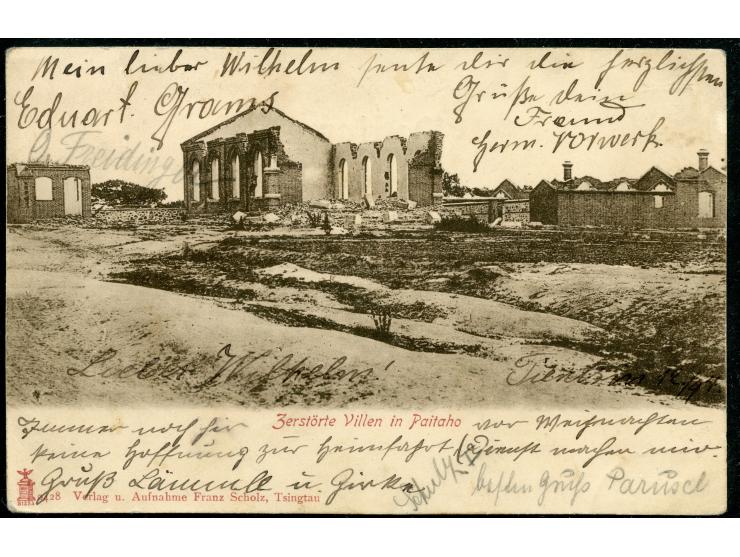 Mein lieber Wilhelm sende dir die herzlichsten
Grüße dein
Freund
Herm. Vorwerk.
Eduart. Grams
O. Freiding
Lieber Wilhelm!
Tientsin
Zerstörte Villen in Paitaho
Immer noch hir vor Weihnachten
keine Hoffnung zur Heimfahrt Dienst machen wir.
Gruß Lämmll u. Girke
Schultz
besten Gruß Parusel
9128 Verlag u. Aufnahme Franz Scholz, Tsingtau